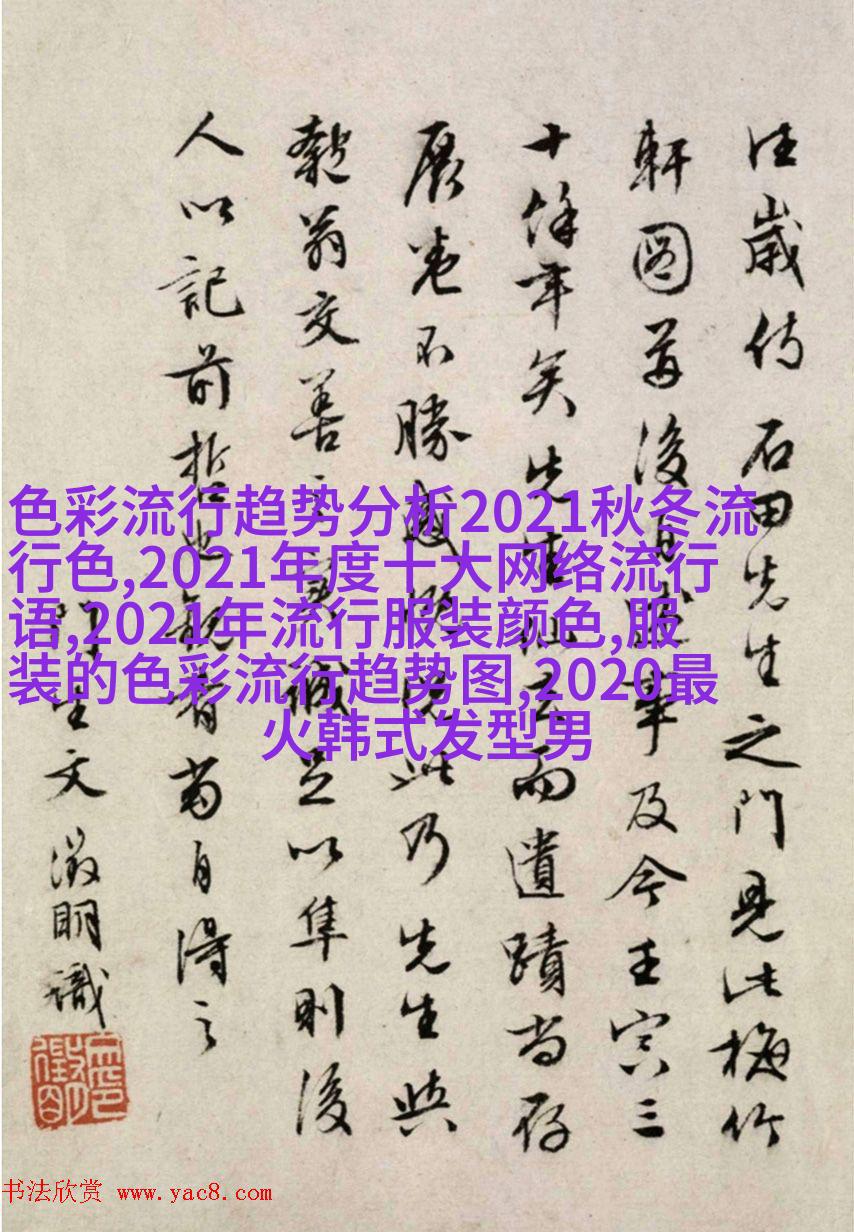 往歲侍 石田先生之門見此梅竹
軒圖後自事及今壬寅三
十餘年矣先生云而遺蹟尚存
展卷不勝感此乃先生與
翁交善之誠足以隼則後
人以記前哲也觀者當自得之
門生文徵明識
色彩流行趋势分析2021秋冬流
行色,2021年度十大网络流行
语,2021年流行服装颜色,服
装的色彩流行趋势图,2020最
火韩式发型男
书法欣赏 www.yac8.com